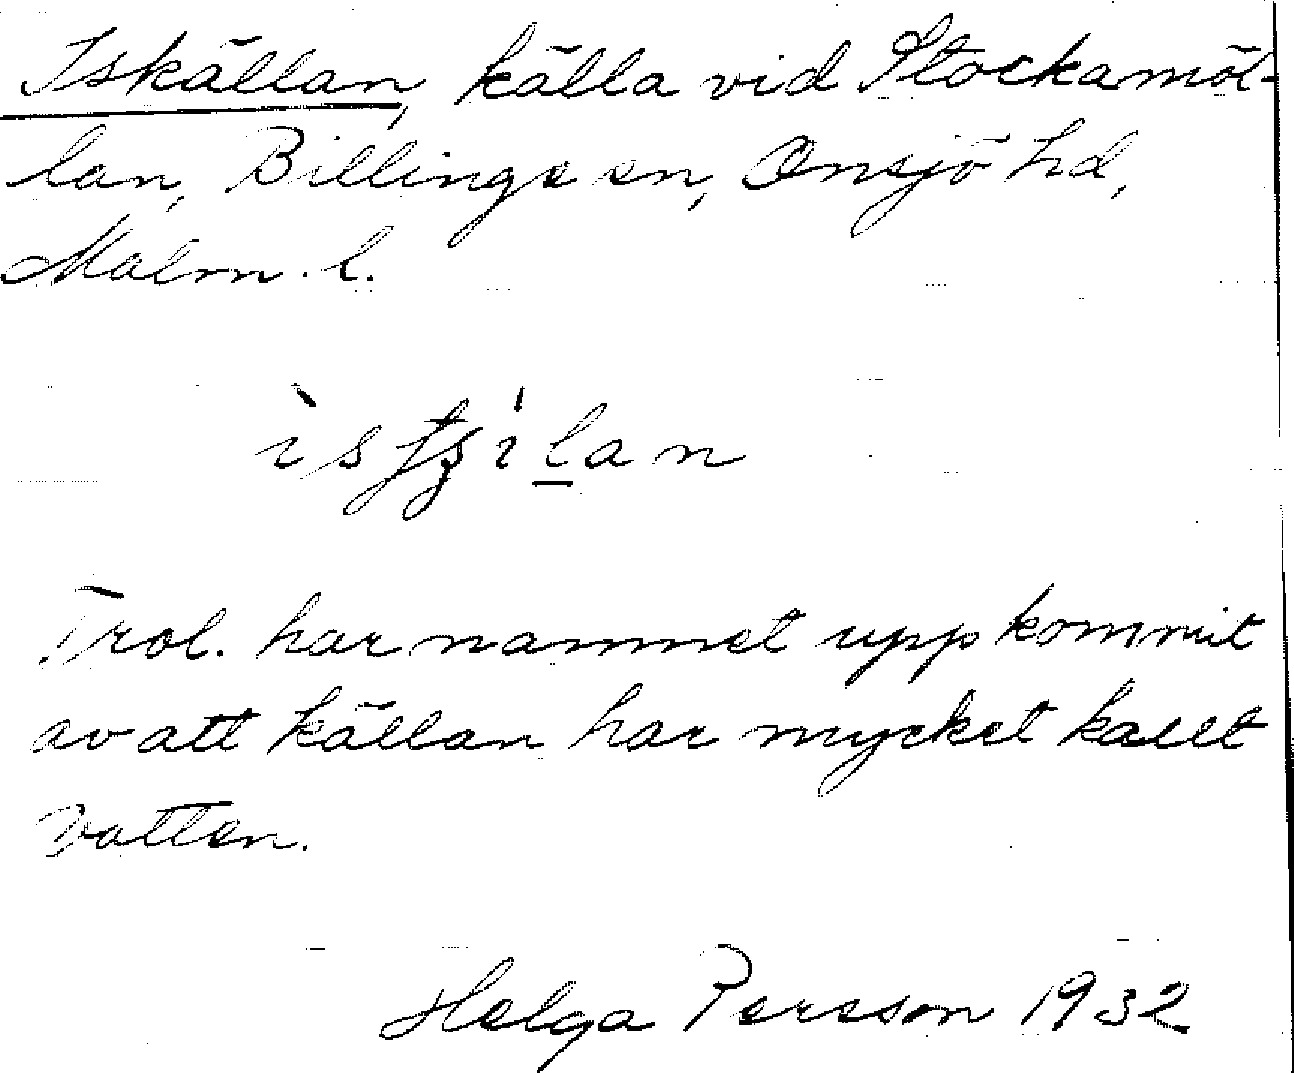 Iskällan, källa vid Stockamöl-
lan, Billinge sn, Onsjö hd,
Malm. l.
Trol. har namnet uppkommit
av att källan har mycket kallt
vatten.
Helga Persson 1932